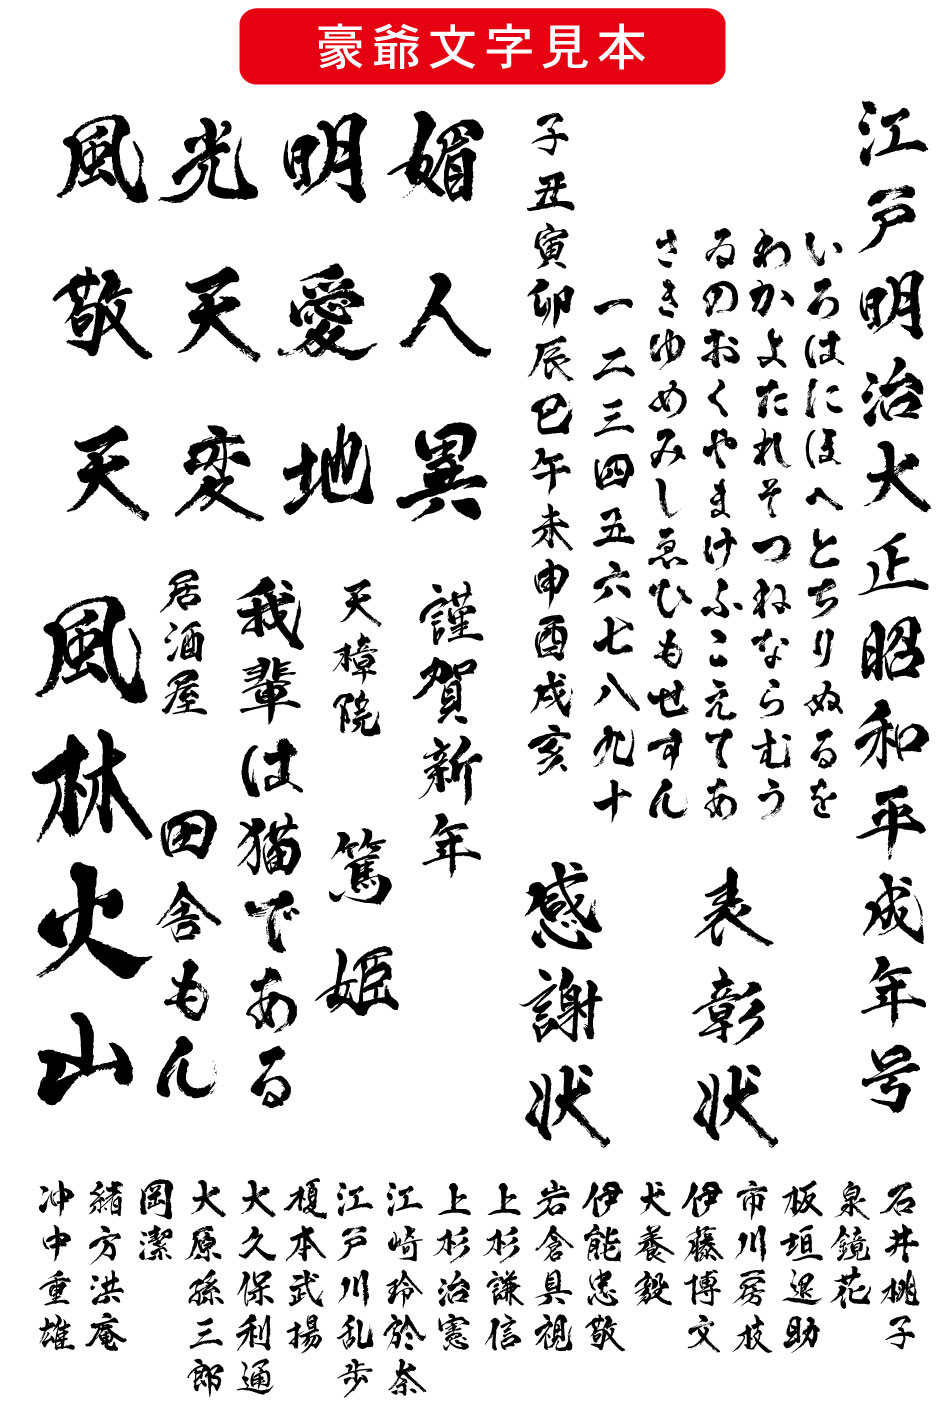 豪爺文字見本
江戸明治大正昭和平成年号
いろはにほへとちりぬるを
わかよたれそつねならむう
ゐのおくやまけふこえてあ
さきゆめみしゑひもせすん
一二三四五六七八九十
子丑寅卯辰巳午未申酉戌亥
表彰状
感謝状
風光明媚
敬天愛人
天変地異
謹賀新年
天樟院
篤姫
我輩は猫である
居酒屋
田舎もん
風林火山
石井桃子
泉鏡花
板垣退助
市川房枝
伊藤博文
犬養毅
伊能忠敬
岩倉具視
上杉謙信
上杉治憲
江崎玲於奈
江戸川乱歩
榎本武揚
大久保利通
大原孫三郎
岡潔
緒方洪庵
冲中重雄